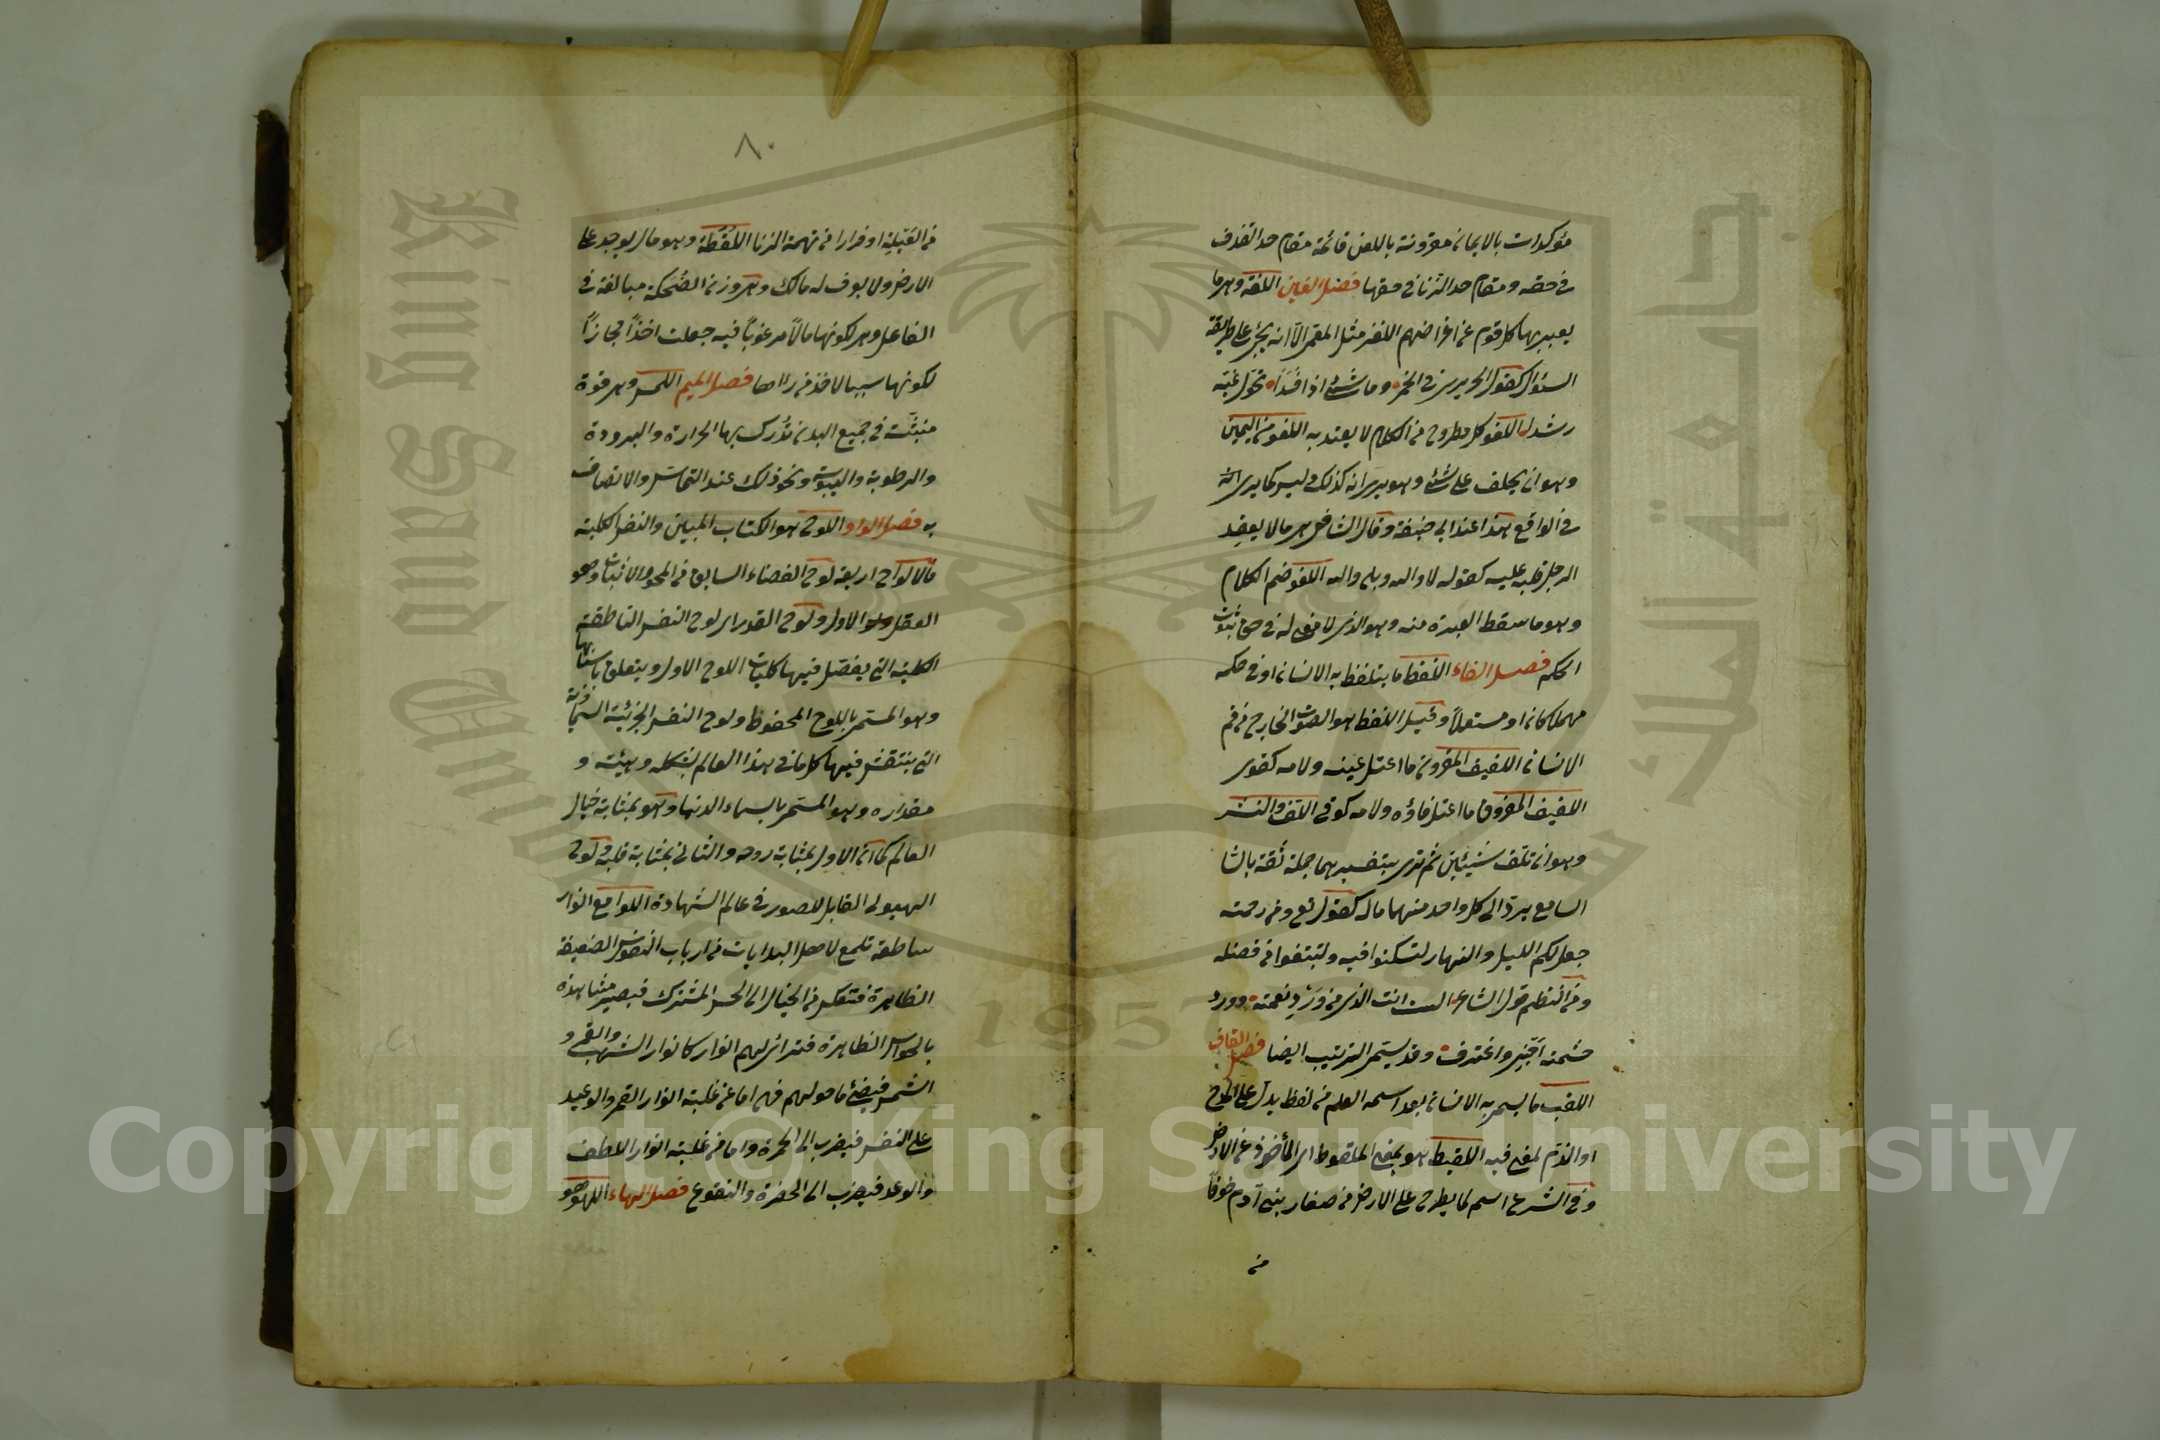 مؤكدات بالايمان مقرونة باللعن قائمة مقام حد القذف
في حقه ومقام حد الزنا في حقها فصل الغين اللغة وهي ما
يعبر بها كل قوم عن اغراضهم اللغز مثل المعمى الا انه يجئ على طريقة
السؤال كقول الحريري في الخمر وما شئ اذا فسدا تحول غيّه
رشدا اللغو كل مطروح من الكلام لا يعتد به اللغو من اليمين
وهو ان يحلف على شئ وهو يرى انه كذلك وليس كما يرى
في الواقع هذا عند ابي حنيفة وقال الشافعي هي ما لا يعقد
الرجل قلبه عليه كقوله لا والله وبلى والله اللغو ضم الكلام
وهو ما سقط العبرة منه وهو الذي لا معنى له في حق ثبوت
الحكم فصل الفاء اللفظ ما يتلفظ به الانسان او في حكمه
مهملا كان او مستعملا وقيل اللفظ هو الصوت الخارج من فم
الانسان اللفيف المقرون ما اعتل عينه ولامه كقوى
اللفيف المفروق ما اعتل فاؤه ولامه كوقى اللف والنشر
وهو ان تلف شيئين ثم ترى بتفسيرهما جملة ثقة بان
السامع يرد الى كل واحد منهما ماله كقوله تع ومن رحمته
جعل لكم الليل والنهار لتسكنوا فيه ولتبتغوا من فضله
ومن النظم قول الشاعر الست انت الذي من ورد نعمته وورد
حشمته اجنى واغترف وقد يسمى الترتيب ايضا فصل القاف
اللقب ما يسمى به الانسان بعد اسمه العلم من لفظ يدل على المدح
او الذم لمعنى فيه اللقيط هو بمعنى الملقوط اى المأخوذ من الارض
وفي الشرع اسم لما يطرح على الارض من صغار بني آدم خوفا
من
٨٠
من العيلة او فرارا من تهمة الزنا اللقطة وهو مال يوجد على
الارض ولا يعرف له مالك وهي وزن الضحكة مبالغة في
الفاعل وهي لكونها مالا مرغوبا فيه جعلت اخذا مجازا
لكونها سببا لاخذ من رآها فصل الميم اللمس وهي قوة
منبثة في جميع البدن تدرك بها الحرارة والبرودة
والرطوبة واليبوسة ونحو ذلك عند التماس والاتصال
به فصل الواو اللوح هو الكتاب المبين والنفس الكلية
فالالواح اربعة لوح القضاء السابق من المحو والاثبات وهو
العقل الاول ولوح القدر اى لوح النفس الناطقة
الكلية التي يفصل فيها كليات اللوح الاول ويتعلق باسبابها
وهو المسمى باللوح المحفوظ ولوح النفس الجزئية السماوية
التي ينتقش فيها كل ما في هذا العالم بشكله وهيئته و
مقداره وهو المسمى بالسماء الدنيا وهو بمثابة خيال
العالم كما ان الاول بمثابة روحه والثاني بمثابة قلبه ولوح
الهيولى القابل للصور في عالم الشهادة اللوامع انوار
ساطعة تلمع لاهل البدايات من ارباب النفوس الضعيفة
الظاهرة فتنعكس من الخيال الى الحس المشترك فيصير مشاهدة
بالحواس الظاهرة فتترائى لهم انوار كانوار الشهب والقمر و
الشمس فيضئ ما حولهم فهي اما عن غلبة انوار القهر والوعيد
على النفس فيضرب الى الحمرة واما من غلبة انوار اللطف
والوعد فيضرب الى الخضرة والنقوع فصل الهاء اللهو هو